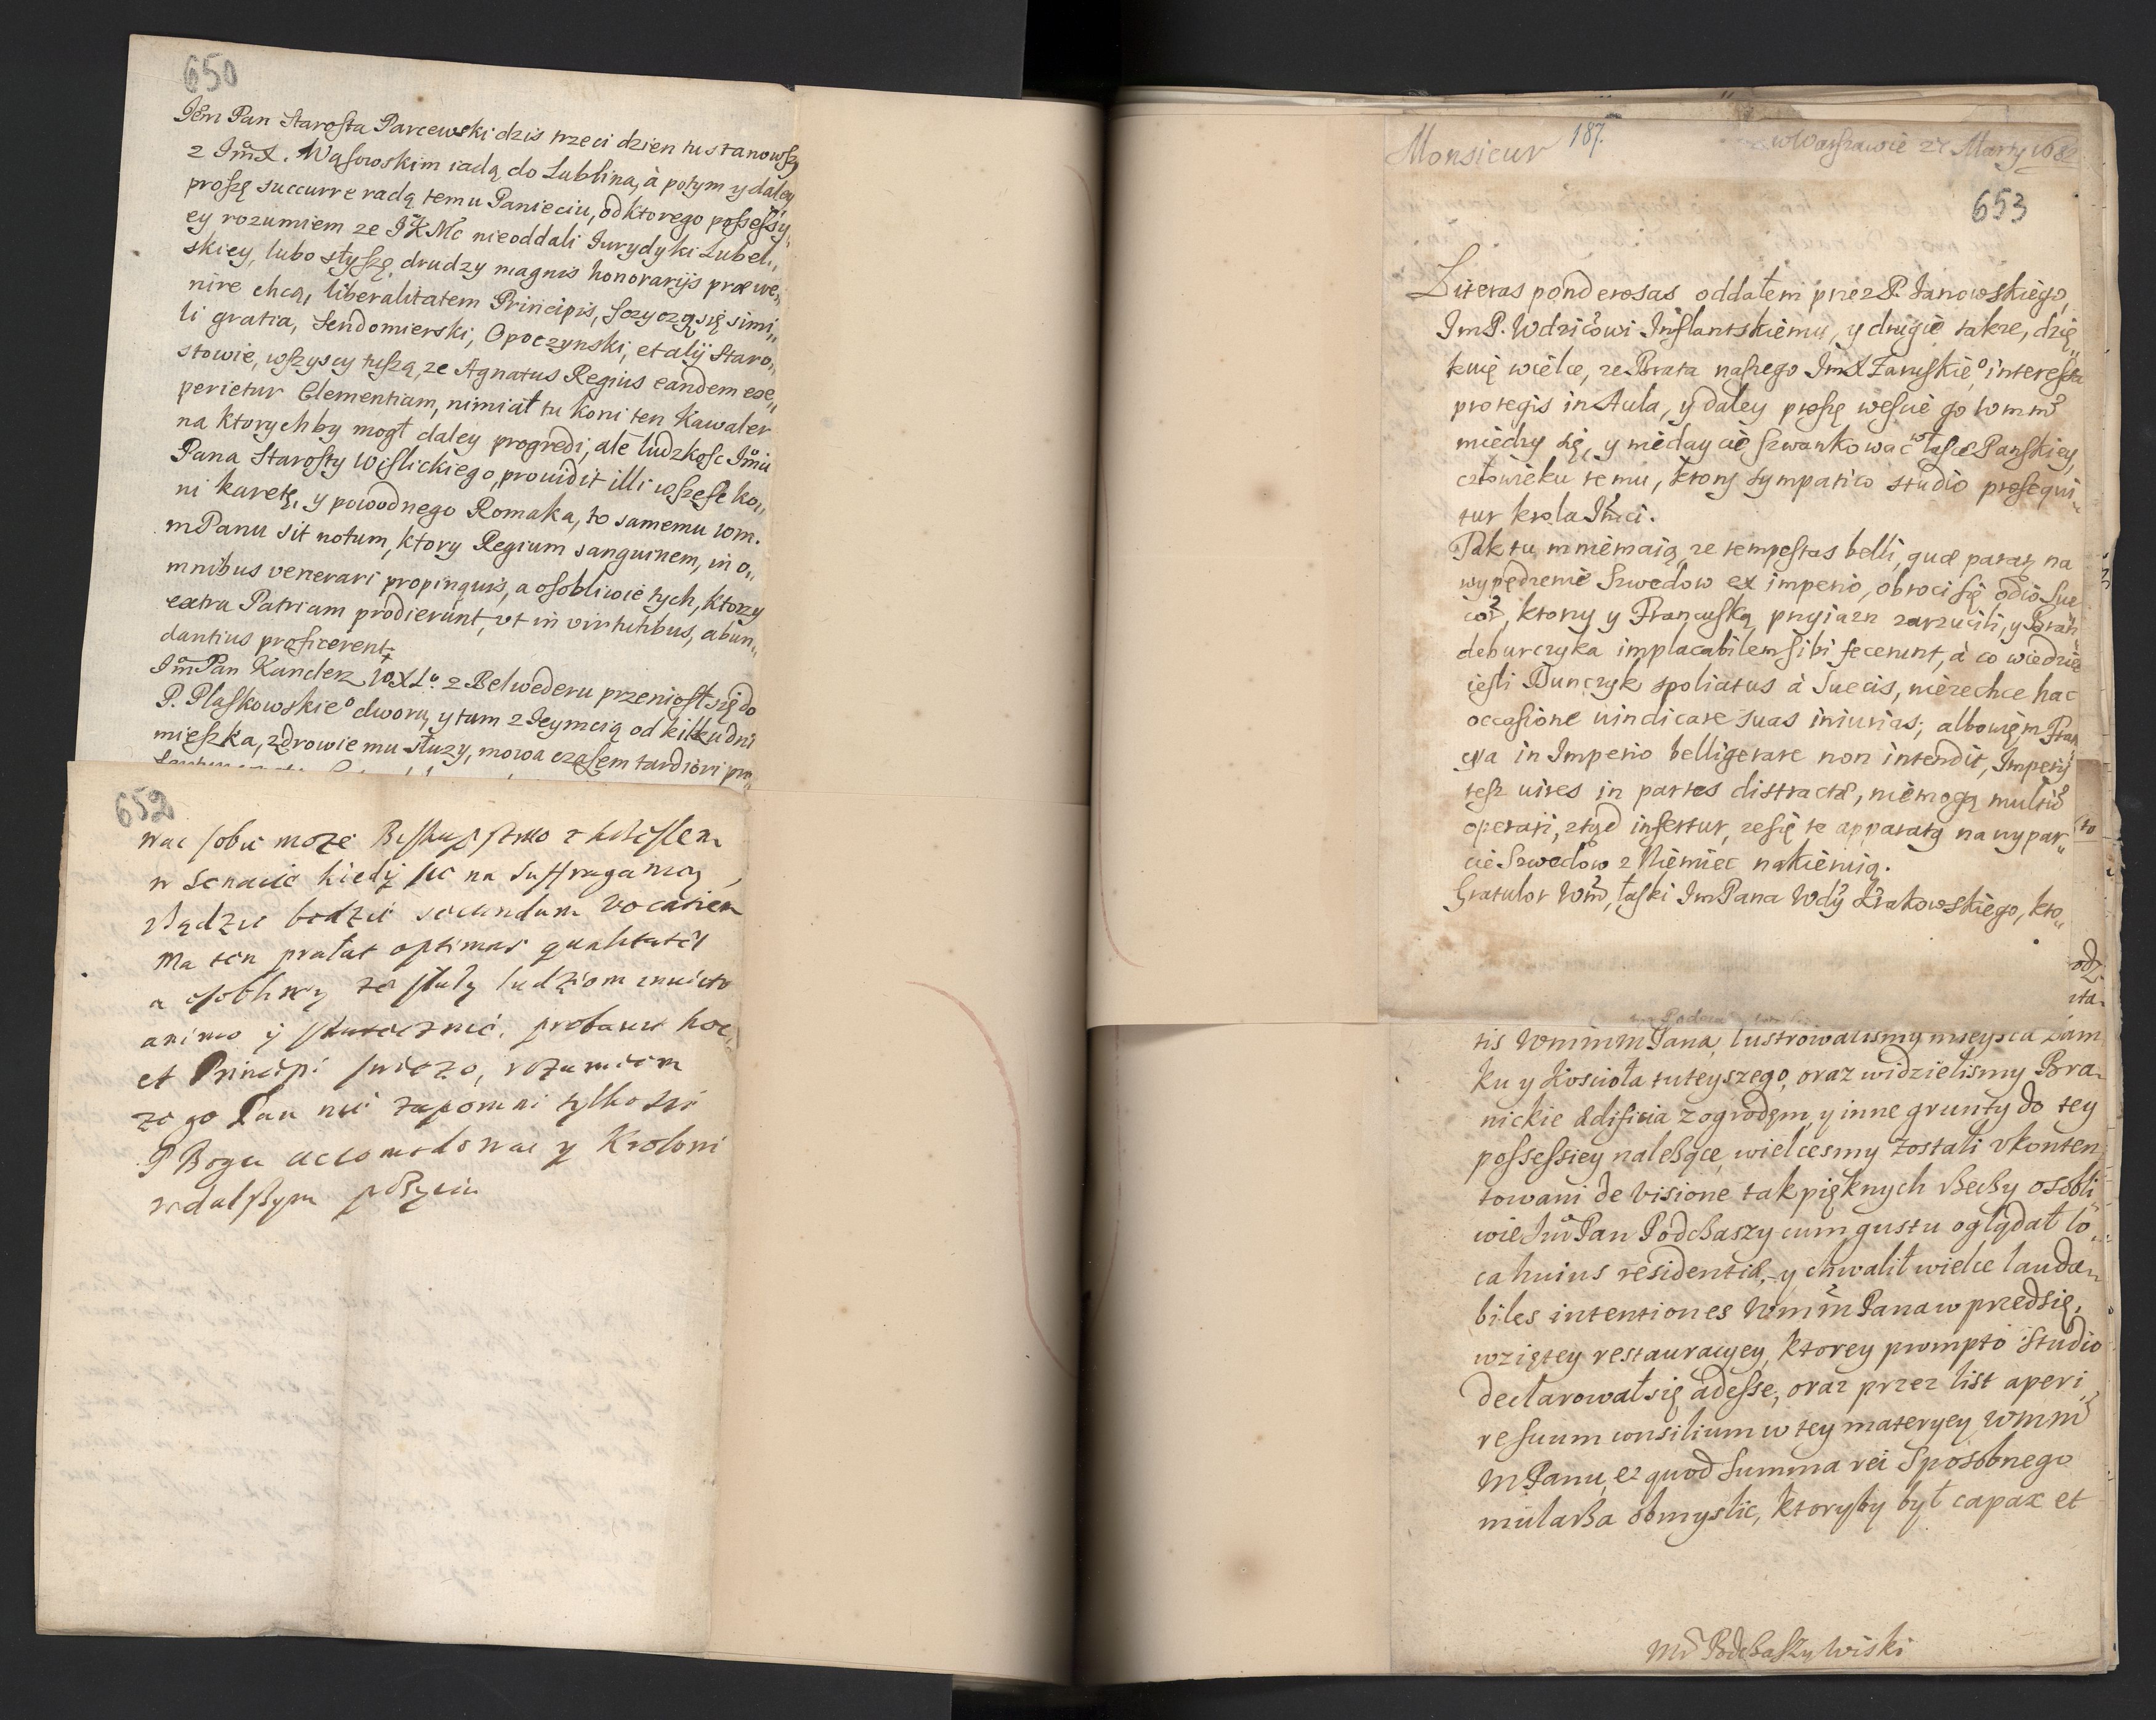 650
Jem Pan Starosta Parcewski dzis trzeci dzien tu stanowszy
z JmX. Wąsowskim iadą do Lublina, à potym y daley
proszę succurre radą temu Panieciu, od ktorego possessÿ„
ey rozumiem ze JKMc nieoddali Jurydyki Lubel„
skiey, lubo słyszę drudzy magnis honorarijs præve„
nire chcą, liberalitatem Principis, szczyczą się simi„
li gratia, Sendomierski, Opoczynski, et alÿ Staro„
stowie, wszyscy tuszą, ze Agnatus Regius eandem exe„
perietur Clementiam, nimiał tu koni ten Kawaler
na ktorychby mogł daley progredi, ale ludzkosc Jmci
Pana Starosty Wislickiego, prouidit illi wszesc ko„
ni karetę, y powodnego Romaka, to samemu wm.
mPanu sit notum, ktory Regium sanguinem, in o„
mnibus venerari propinquis, a osobliwie tych, ktorzy
extra Patriam prodierunt, vt in virtutibus, abun„
dantius proficerent.
JmPan Kanclerz WXL. z Belwederu przeniosł się do
P. Plaskowskie° dworu, y tam z Jeymcią od kilku dni
mieszka, zdrowie mu służy, mowa czasem tardiori
652
wac sobie moze Biskupstwo z krzeslem
w Senacie kiedy sie na Suffraganią
wsadzie bedzie secundum vocatiem
Ma ten prałat optimas qualitates
a osobliwy ze służy ludziom inuicto
animo y statecznie, probauit hoc
et Principi suiezo, rozumiem
ze go Pan nie zapomni tylko sie
P Bogu accomodowac y Krolowi
w dalszym pozyciu
Monsieur
187.
w Warszawie 27 Marty 1682
653
Literas ponderosas oddałem przez P. Janowskiego,
JmP. Wdzicowi Inflantskiemu, y drugie takze, dzię„
kuię wielce, ze Brata naszego JmX Zaruskie° interessa
protegis in Aula, y daley proszę wescie go wmm
miedzy się, y niedaycie szwankowac w łasce Panskiey,
człowieku temu, ktory sympatico studio prosequi„
tur krola Jmci.
Tak tu mniemaią, ze tempestas belli, quæ paratj na
wypędzenie Szwedow ex imperio, obroci się odio Sue
cor, ktorzy y Francuską przyiazn zarzucili, y Bran„
deburczyka implacabilem sibi fecerunt, à co wiedziec
iesli Dunczyk spoliatus à Suecis, niezechce hac
occasione uindicare suas iniurias; albowiem Fran
cya in Imperio belligerare non intendit, Imperÿ
tesz uires in partes distractæ, niemogą multis
operari, ztąd infertur, ze się te apparaty na wypar„
cie Szwedow z Niemiec nakieruią.
Gratulor Wm, łaski JmPana Wdy Krakowskiego, kto„
tis WmmmPana, lustrowalismy mieysca Zam
ku y Kościoła tuteyszego, oraz widzielismy Bra„
nickie ædificia z ogrodem, y inne grunty do tey
possessiey należące, wielcesmy zostali vkonten
towani de visione tak pięknych rzeczy osobli
wie Jm Pan Podczaszy cum gustu oglądał lo„
ca huius residentiæ, y chwalił wielce lauda„
biles intentiones Wmm Pana w przedsię„
wziętey restauracyey, ktorey prompto studio
declarował się adesse, oraz przez list aperi
re suum consilium w tey materyey Wmm
MPanu, et quod summa rei Sposobnego
mularza obmyslic, ktoryby był capax et
Mr Podczaszy Wiski